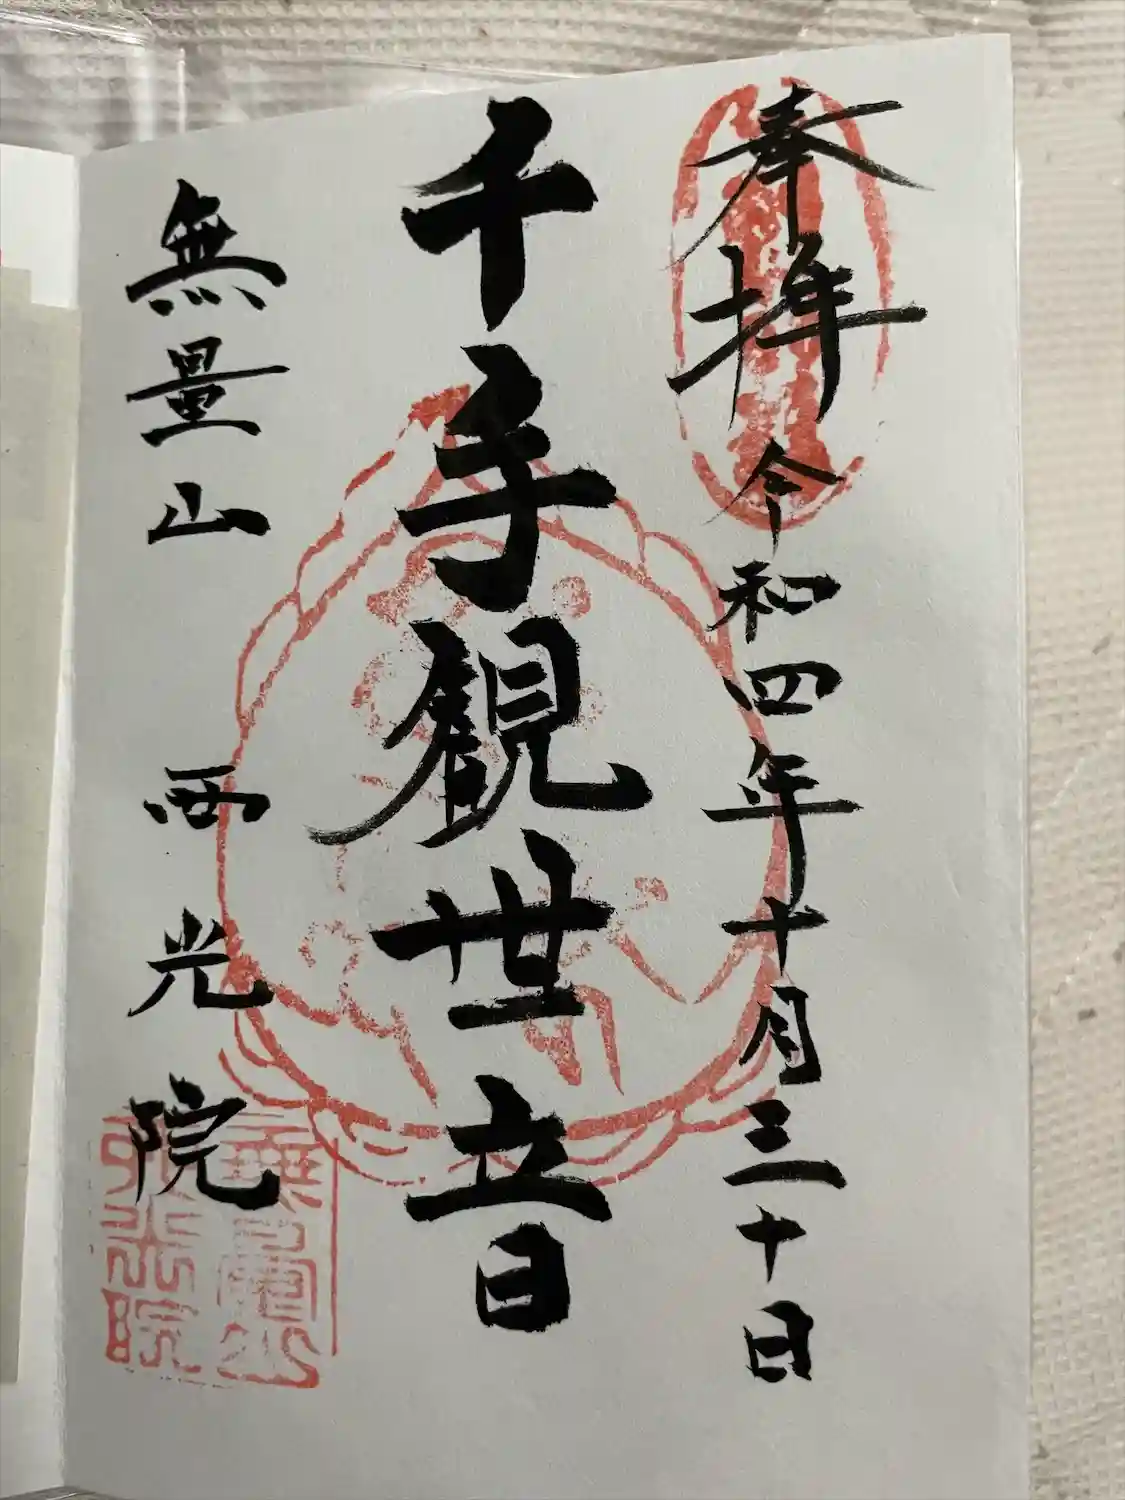 奉拝 令和四年十月三十日
千手観世音
無量山 西光院
無量山
西光院